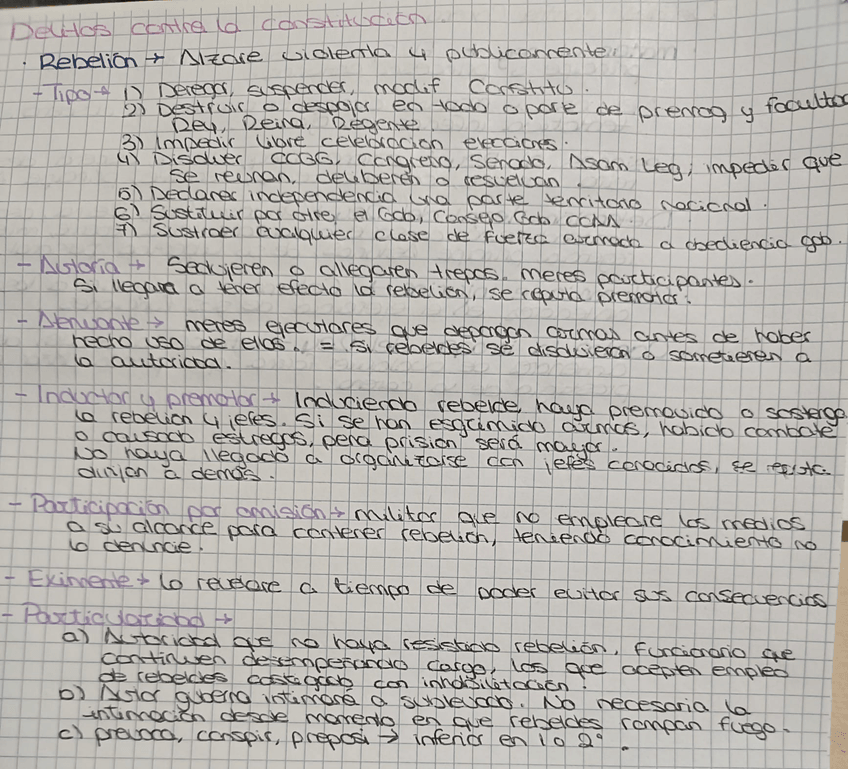 Delitos contra la constitución
· Rebelión → Alzare violenta y públicamente.
- Tipo → 1) Derogar, suspender, modif Constitu.
2) Destruir o despojar en todo o parte de prerrog y facultad
Rey, Reina, Regente
3) Impedir libre celebración elecciones.
4) Disolver CCGG, Congreso, Senado, Asam Leg, impedir que
se reunan, deliberen o resuelvan.
5) Declarar independencia una parte territorio nacional.
6) Sustituir por otro el Gob, Consejo Gob CCAA.
7) Sustraer cualquier clase de fuerza armada a obediencia gob.
- Autoría → Sedujeren o allegaren tropas. meros participantes.
Si llegara a tener efecto la rebelión, se reputa promotor.
- Atenuante → meros ejecutores que depongan armas antes de haber
hecho uso de ellas. = si rebeldes se disolvieran o sometieren a
la autorida.
- Inductor y promotor → Induciendo rebelde, haya promovido o sostenga
la rebelión y jefes. Si se han esgrimido armas, habido combate
o causado estragos, pena prision será mayor.
No haya llegado a organizarse con jefes conocidos, se
dirijan a demás.
- Participación por omisión → militar que no empleare los medios
a su alcance para contener rebelión, teniendo conocimiento no
lo denuncie.
- Eximente → lo revelare a tiempo de poder evitar sus consecuencias
- Particularidad →
a) Autoridad que no haya resistido rebelión, funcionario que
continuen desempeñando cargo, los que acepten empleo
de rebeldes castigado con inhabilitación.
b) Autor guberna intimará a sublevado. No necesaria la
intimación desde momento en que rebeldes rompan fuego.
c) provoca, conspir, proposi → inferior en 1 o 2º.